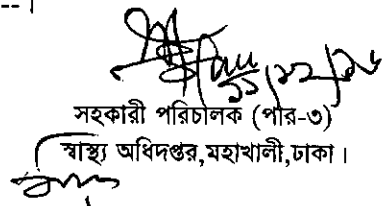 -- ।
১১/১২/১৬
সহকারী পরিচালক (পার-৩)
স্বাস্থ্য অধিদপ্তর,মহাখালী,ঢাকা।